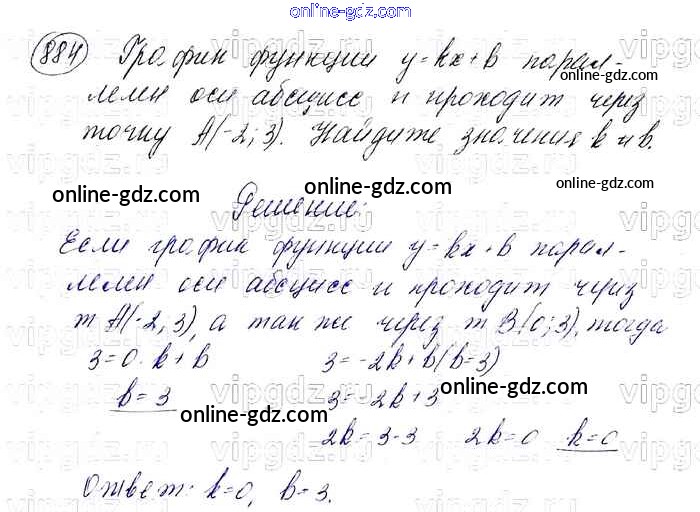 online-gdz.com
884 График функции y=kx+b парал-
online-gdz.com
лелен оси абсцисс и проходит через
точку A(-2; 3). Найдите значения k и b.
online-gdz.com
online-gdz.com
Решение:
Если график функции y=kx+b парал-
лелен оси абсцисс и проходит через
online-gdz.com
т A(-2, 3), а так же через т B(0; 3), тогда
3=0·k+b 3=-2k+b(b=3)
b=3 3=-2k+3
online-gdz.com
online-gdz.com
2k=3-3 2k=0 k=0
Ответ: k=0, b=3.